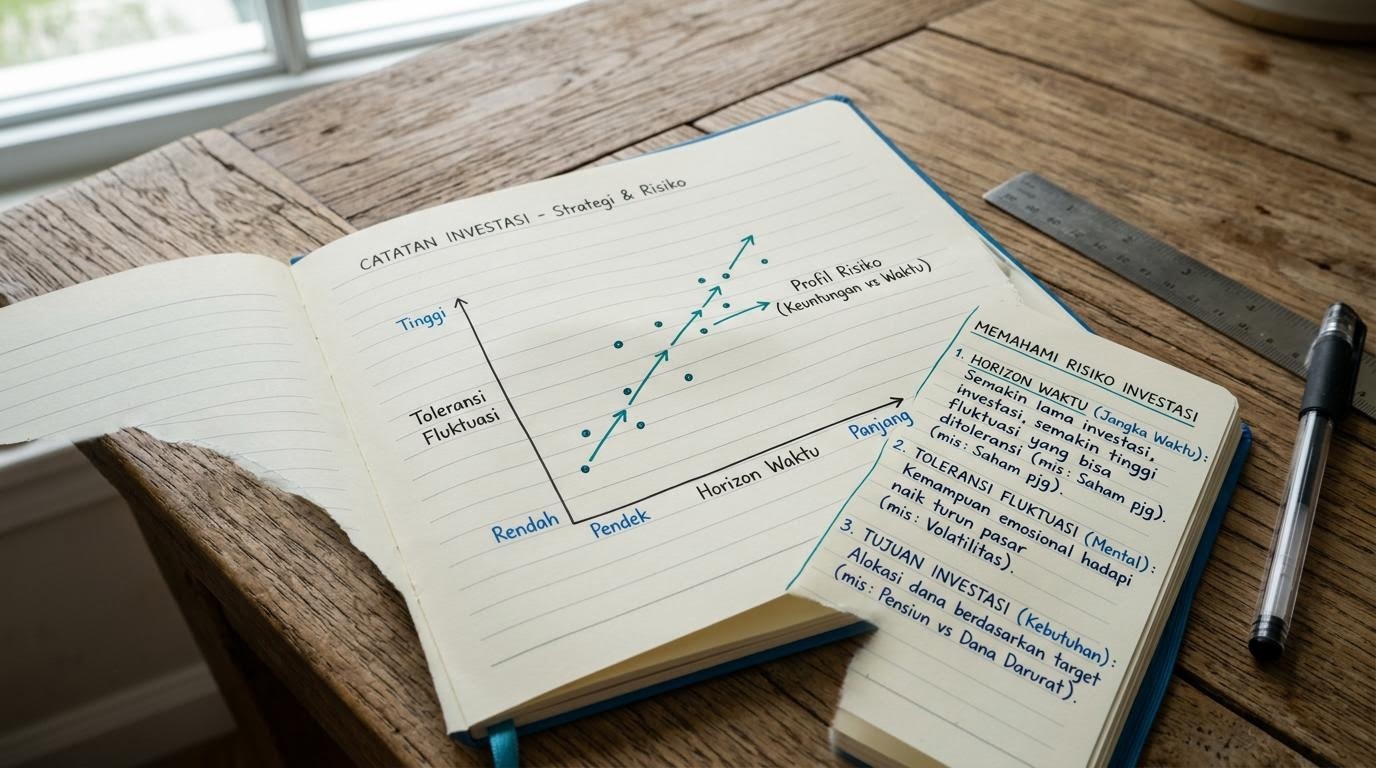 CATATAN INVESTASI - Strategi & Risiko
Tinggi
Toleransi
Fluktuasi
Rendah
Pendek
Horizon Waktu
Panjang
Profil Risiko
(Keuntungan vs Waktu)
MEMAHAMI RISIKO INVESTASI
1. HORIZON WAKTU (Jangka Waktu):
Semakin lama investasi,
investasi, semakin tinggi
fluktuasi yang bisa
ditoleransi (mis: Saham
(mis: Saham pjg).
2. TOLERANSI FLUKTUASI (Mental):
Kemampuan emosional hadapi
naik turun pasar
(mis: Volatilitas).
3. TUJUAN INVESTASI (Kebutuhan):
Alokasi dana berdasarkan target
(mis: Pensiun vs Dana Darurat).